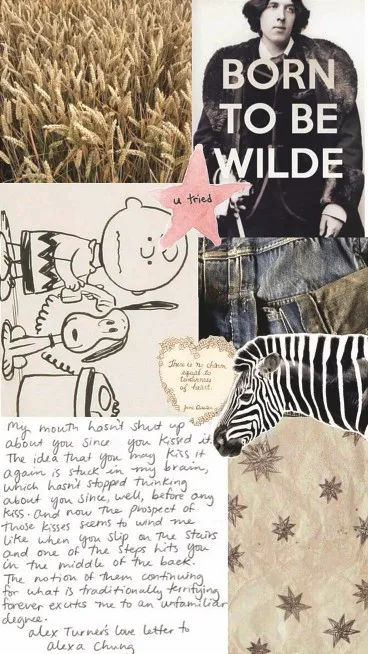 BORN
TO BE
WILDE
u tried
There is no charm
equal to
tenderness
of heart.
Jane Austen
My mouth hasn't shut up
about you since you kissed it.
The idea that you may kiss it
again is stuck in my brain,
which hasn't stopped thinking
about you since, well, before any
kiss. and now the prospect of
those kisses seems to wind me
like when you slip on the stairs
and one of the steps hits you
in the middle of the back.
The notion of them continuing
for what is traditionally terrifying
forever excites me to an unfamiliar
degree.
alex Turner's love letter to
alexa Chung